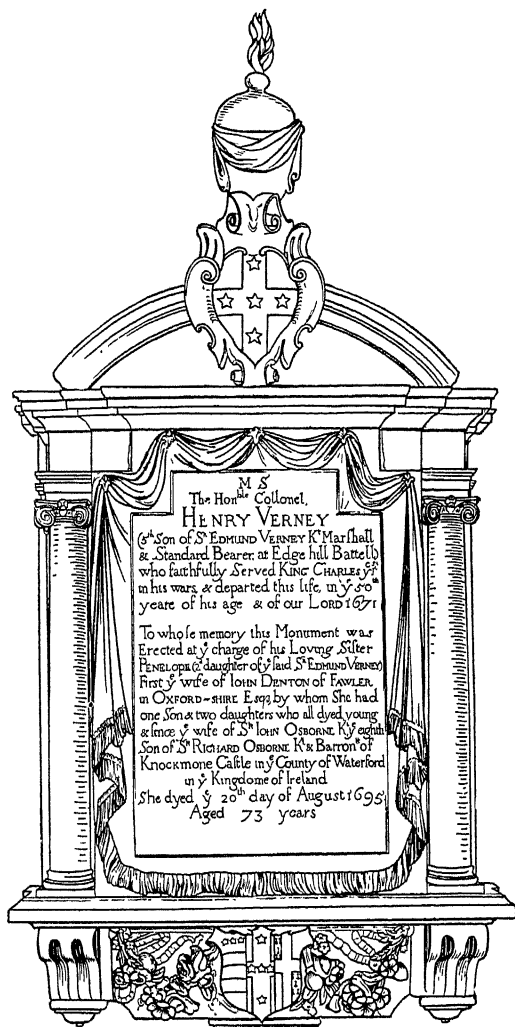 M S
The Hon^ble Collonel,
HENRY VERNEY
(5^th Son of S^R EDMUND VERNEY K^t Marſhall
& Standard Bearer, at Edge hill Battell)
who faithfully Served KING CHARLES y^e 1^st
in his wars, & departed this life, in y^e 50^th
yeare of his age & of our LORD 1671
To whoſe memory this Monument was
Erected at y^e charge of his Loving Siſter
PENELOPE (2^d daughter of y^e ſaid S^R EDMUND VERNEY)
Firſt y^e wife of IOHN DENTON of FAWLER
in OXFORD-SHIRE Esq, by whom She had
one Son & two daughters who all dyed young
& ſince y^e wife of S^R IOHN OSBORNE K^t y^e eighth
Son of S^R RICHARD OSBORNE K^t & Barron^t of
KNOCKMONE Caſtle in y^e County of Waterford
in y^e Kingdome of Ireland
She dyed y^e 20^th day of August 1695
Aged 73 years